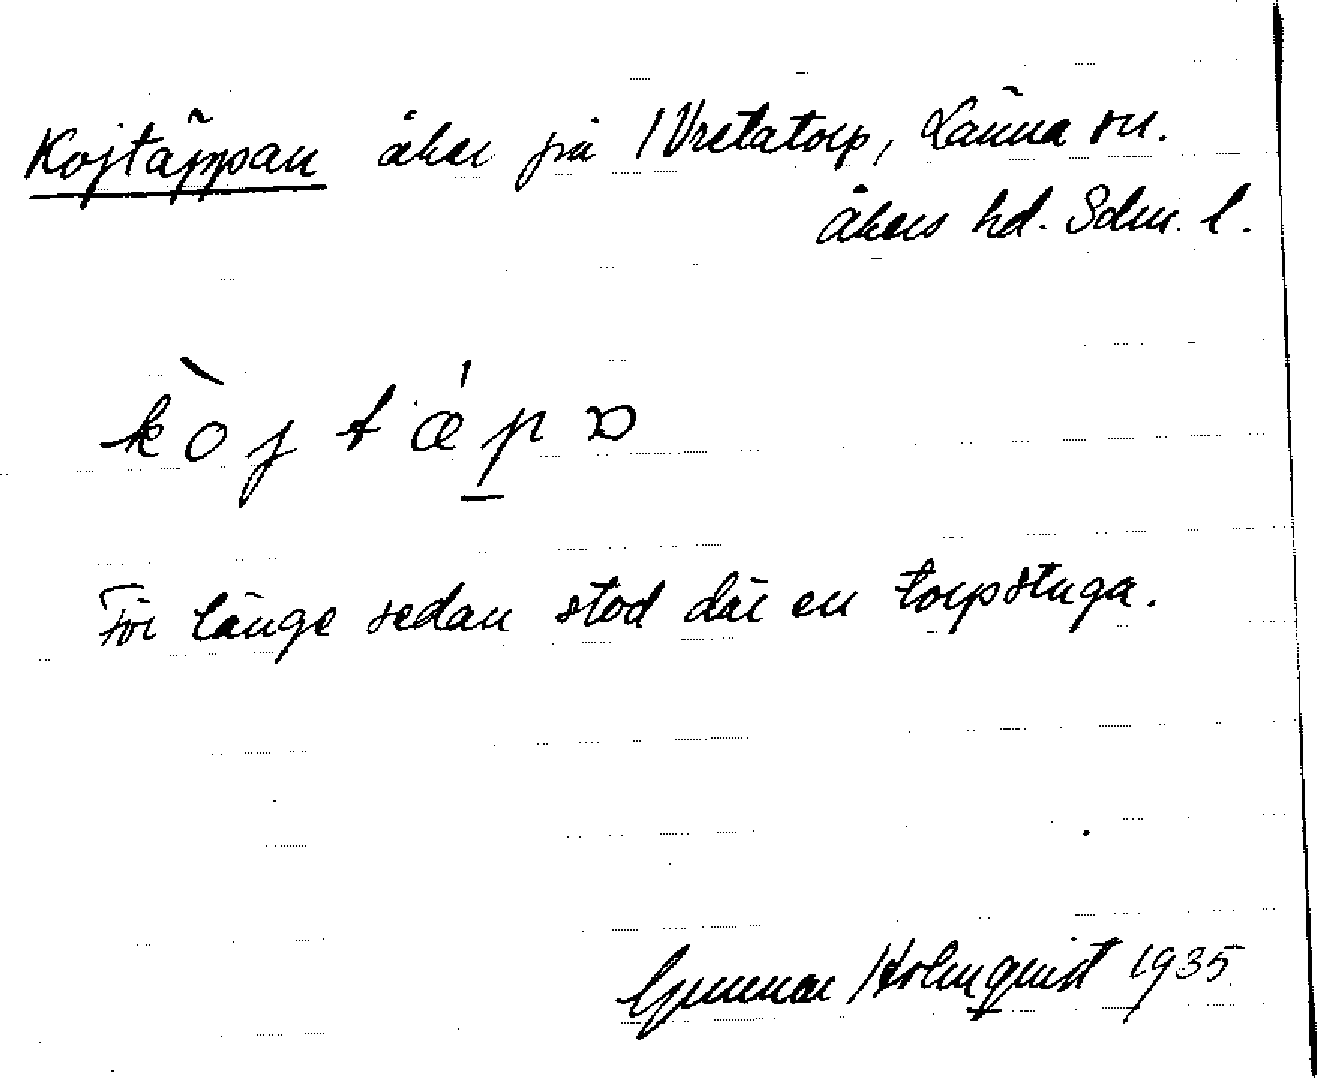 Kojtäppan åker på Vretatorp, Länna sn.
Åkers hd. Sdm. l.
kòjtǽp̠ɒ
För länge sedan stod där en torpstuga.
Gunnar Holmquist 1935